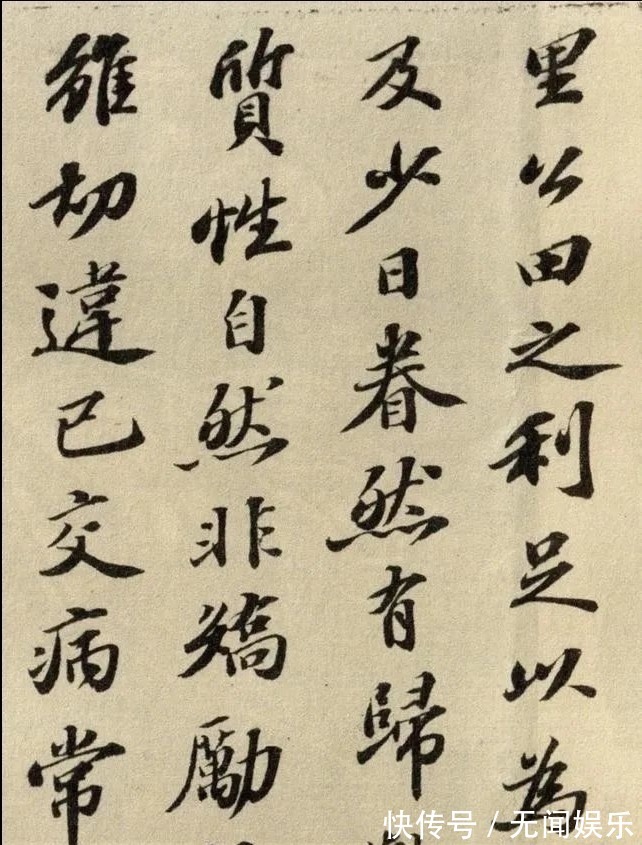 里公田之利足以為
及少日眷然有歸
質性自然非矯勵
雖切違己交病常
快传号 / 无闻娱乐